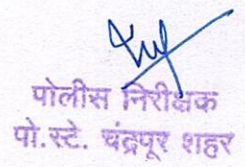 पोलीस निरीक्षक
पो.स्टे. चंद्रपूर शहर